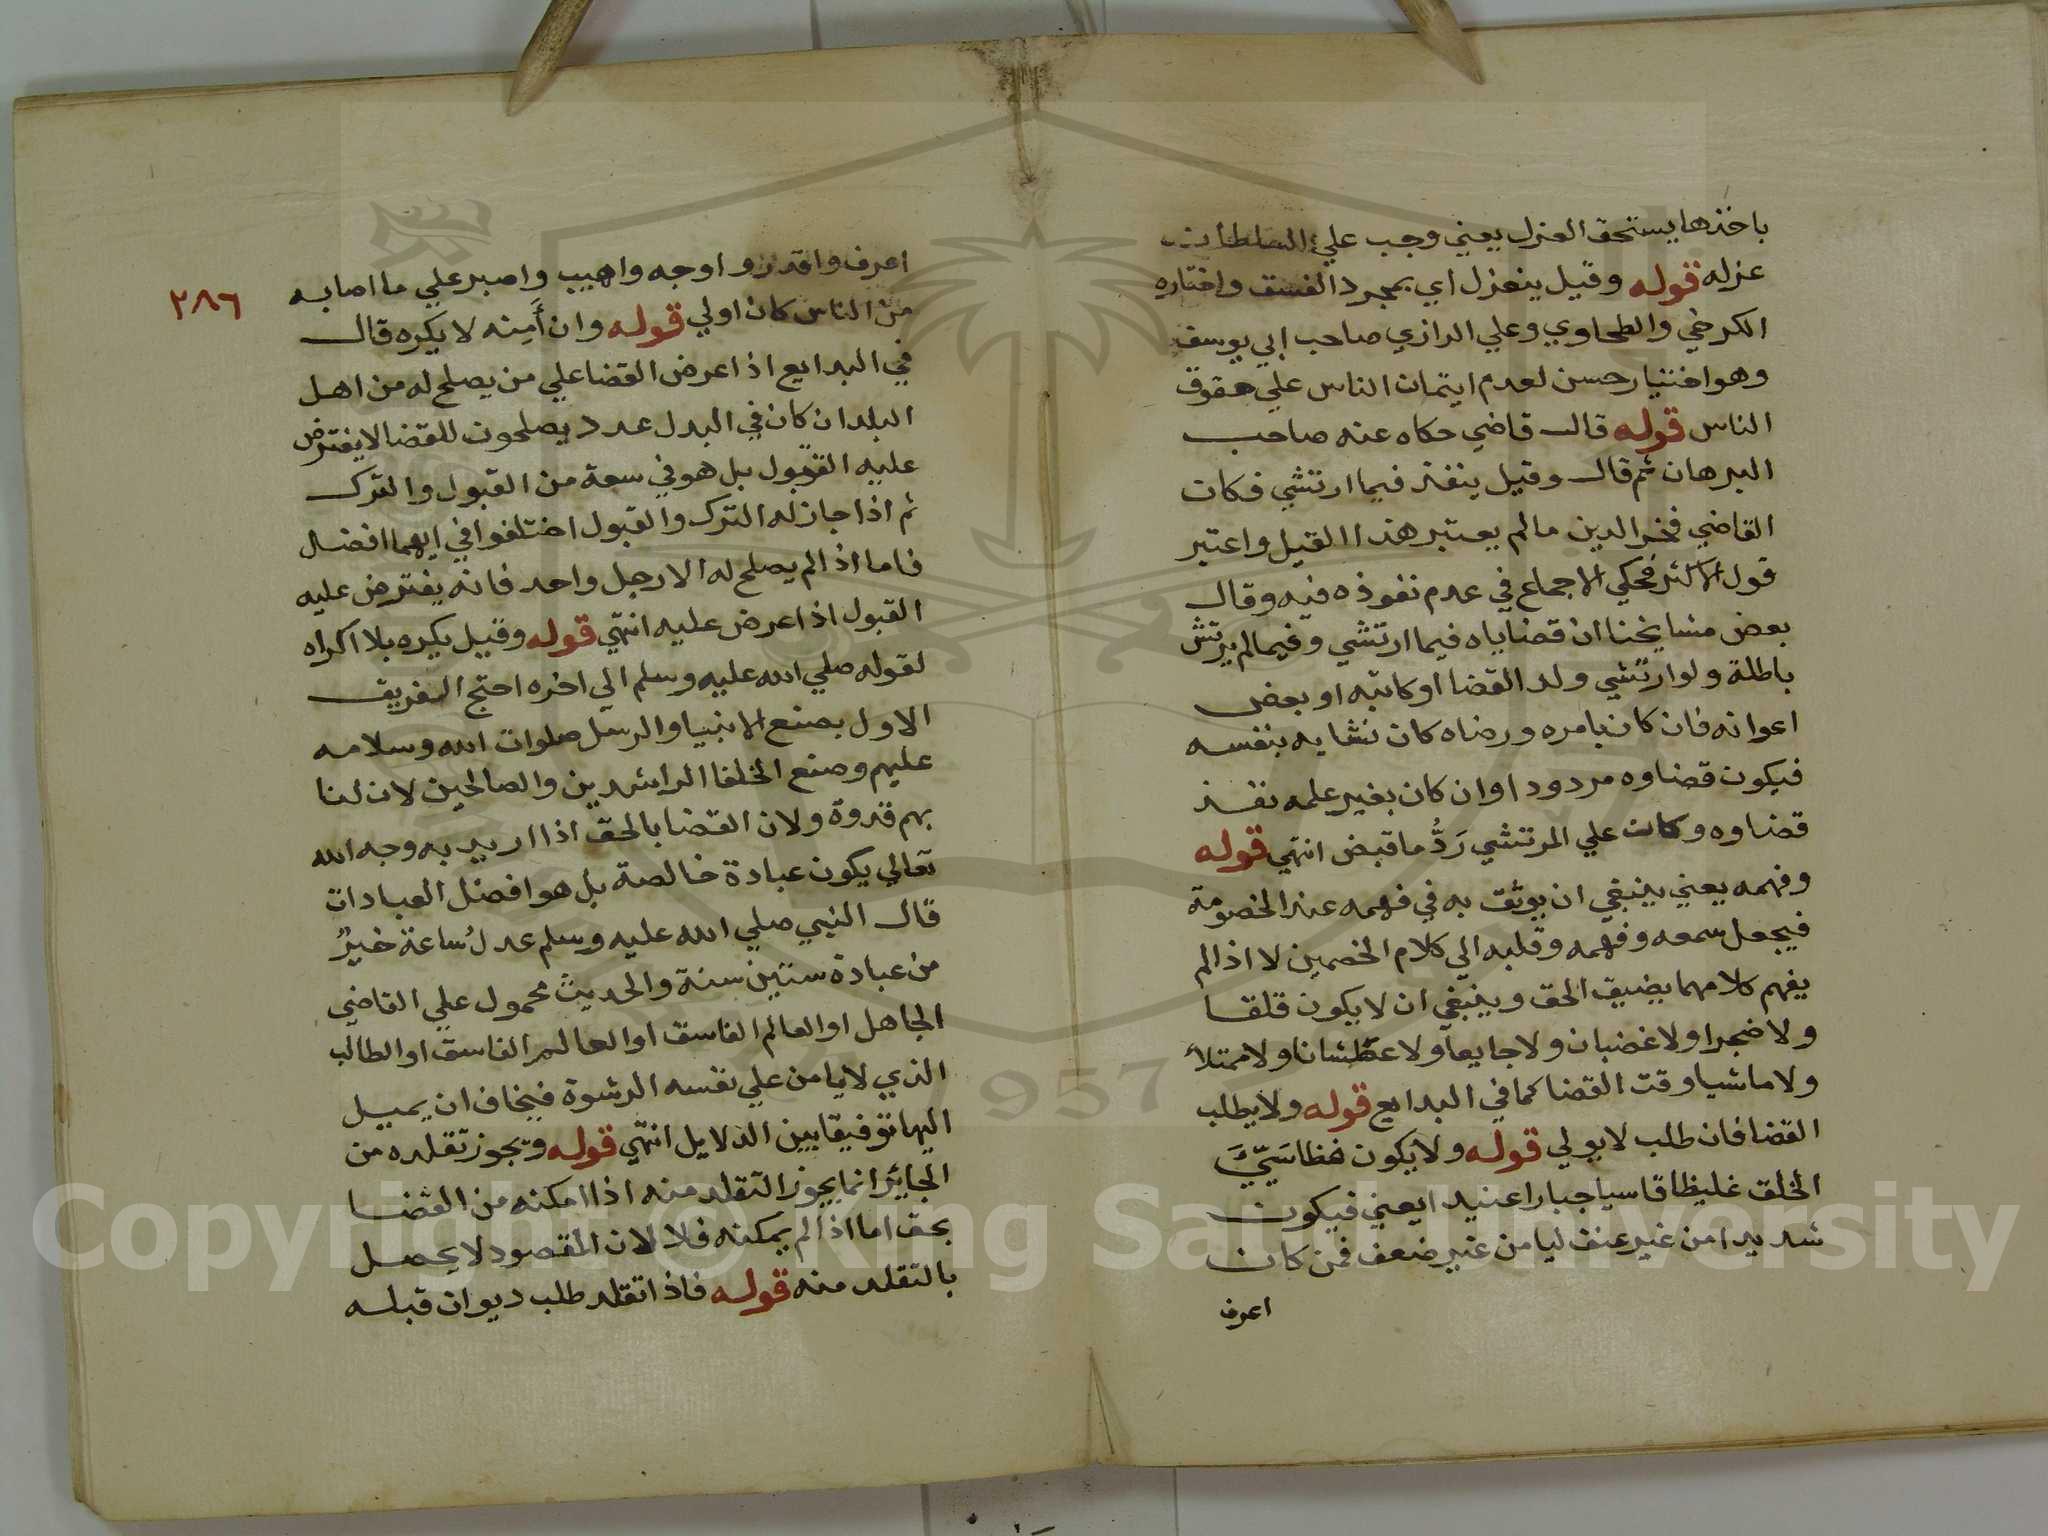 باخذها يستحق العزل يعني وجب علي السلطان
عزله قوله وقيل ينعزل اي بمجرد الفسق واختاره
الكرخي والطحاوي وعلي الرازي صاحب ابي يوسف
وهو اختيار حسن لعدم ايتمان الناس علي حقوق
الناس قوله قال قاضي حكاه عنه صاحب
البرهان ثم قال وقيل ينفذ فيما ارتشي فكان
القاضي فخر الدين مالم يعتبر هذا القيل واعتبر
قول الاكثر فحكي الاجماع في عدم نفوذه فيه وقال
بعض مشايخنا ان قضاياه فيما ارتشي وفيما لم يرتش
باطلة ولو ارتشي ولد القضا او كاتبه او بعض
اعوانه فان كان بامره ورضاه كان نشايه بنفسه
فيكون قضاوه مردودا وان كان بغير علمه نفذ
قضاوه وكان علي المرتشي رَدُّ ما قبض انتهي قوله
وفهمه يعني ينبغي ان يوثق به في فهمه عند الخصومة
فيجعل سمعه وفهمه وقلبه الي كلام الخصمين لا اذا لم
يفهم كلامهما يضيق الحق وينبغي ان لا يكون قلقا
ولا ضجرا ولا غضبان ولا جايعا ولا عطشانا ولا ممتلأ
ولا ماشيا وقت القضا كما في البدايع قوله ولا يطلب
القضا فان طلب لا يولي قوله ولا يكون فظا سَيِّيَ
الخلق غليظا قاسيا جبارا عنيدا يعني فيكون
شديدا من غير عنف ليا من غير ضعف فمن كان
اعرف
٢٨٦
اعرف واقدر و اوجه واهيب واصبر علي ما اصابه
من الناس كان اولي قوله وان أَمِنه لا يكره قال
في البدايع اذا عرض القضا علي من يصلح له من اهل
البلد ان كان في البدل عدد يصلحون للقضا لا يفترض
عليه القبول بل هو في سعة من القبول والترك
ثم اذا جاز له الترك والقبول اختلفوا في ايهما افضل
فاما اذا لم يصلح له الا رجل واحد فانه يفترض عليه
القبول اذا عرض عليه انتهي قوله وقيل يكره بلا اكراه
لقوله صلي الله عليه وسلم الي اخره احتج الفريق
الاول بصنع الانبيا والرسل صلوات الله وسلامه
عليهم وصنع الخلفا الراشدين والصالحين لان لنا
بهم قدوة ولان القضا بالحق اذا اريد به وجه الله
تعالي يكون عبادة خالصة بل هو افضل العبادات
قال النبي صلي الله عليه وسلم عدلُ ساعة خيرٌ
من عبادة ستين سنة والحديث محمول علي القاضي
الجاهل او العالم الفاسق او العالم الفاسق او الطالب
الذي لا يامن علي نفسه الرشوة فيخاف ان يميل
اليها توفيقا بين الدلايل انتهي قوله ويجوز تقلده من
الجائر انما يجوز التقلد منه اذا امكنه من القضا
بحق اما اذا لم يمكنه فلا لان المقصود لا يحصل
بالتقلد منه قوله فاذا تقلد طلب ديوان قبله
Copyright © King Saud University
1957